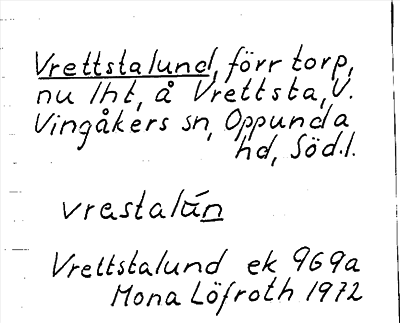 Vrettstalund, förr torp,
nu lht, å Vrettsta, V.
Vingåkers sn, Oppunda
hd, Söd.l.
vrestalún
Vrettstalund ek 969a
Mona Löfroth 1972